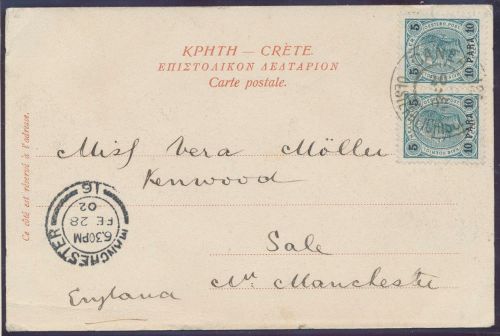 ΚΡΗΤΗ — CRÈTE.
ΕΠΙΣΤΟΛΙΚΟΝ ΔΕΛΤΑΡΙΟΝ
Carte postale.
5 10 PARA 10
5 10 PARA 10
Ce côté est réservé à l'adresse.
Miss Vera Möller
Kenwood
Sale
Nr Manchester
England
MANCHESTER
6.30PM
FE 28
02
16